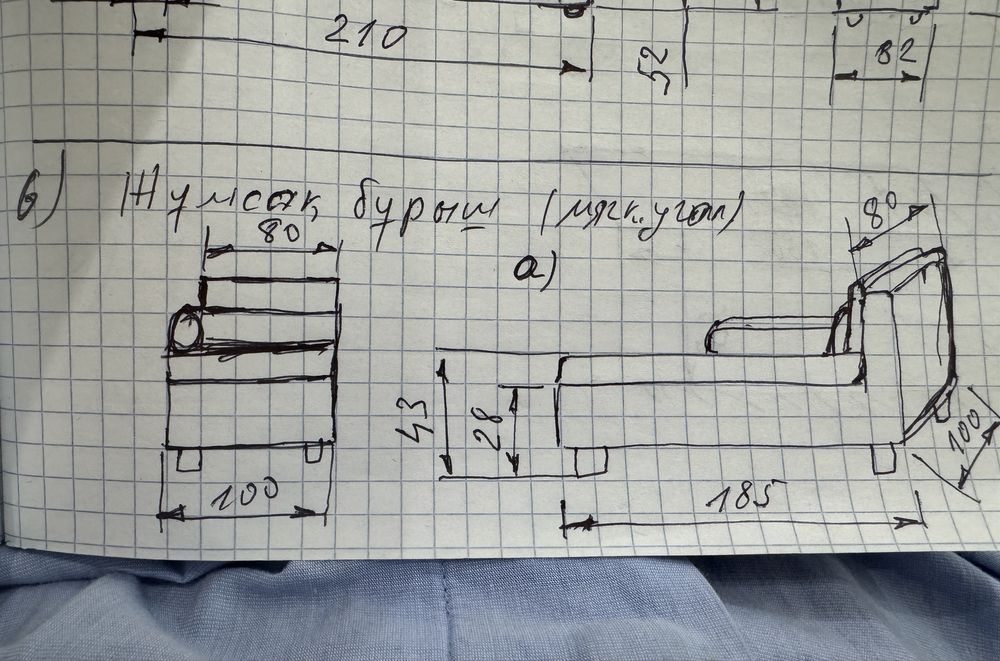 210
52
82
6) Жұмсақ бұрыш (мягк. угол)
80
80
а)
43
28
100
100
185